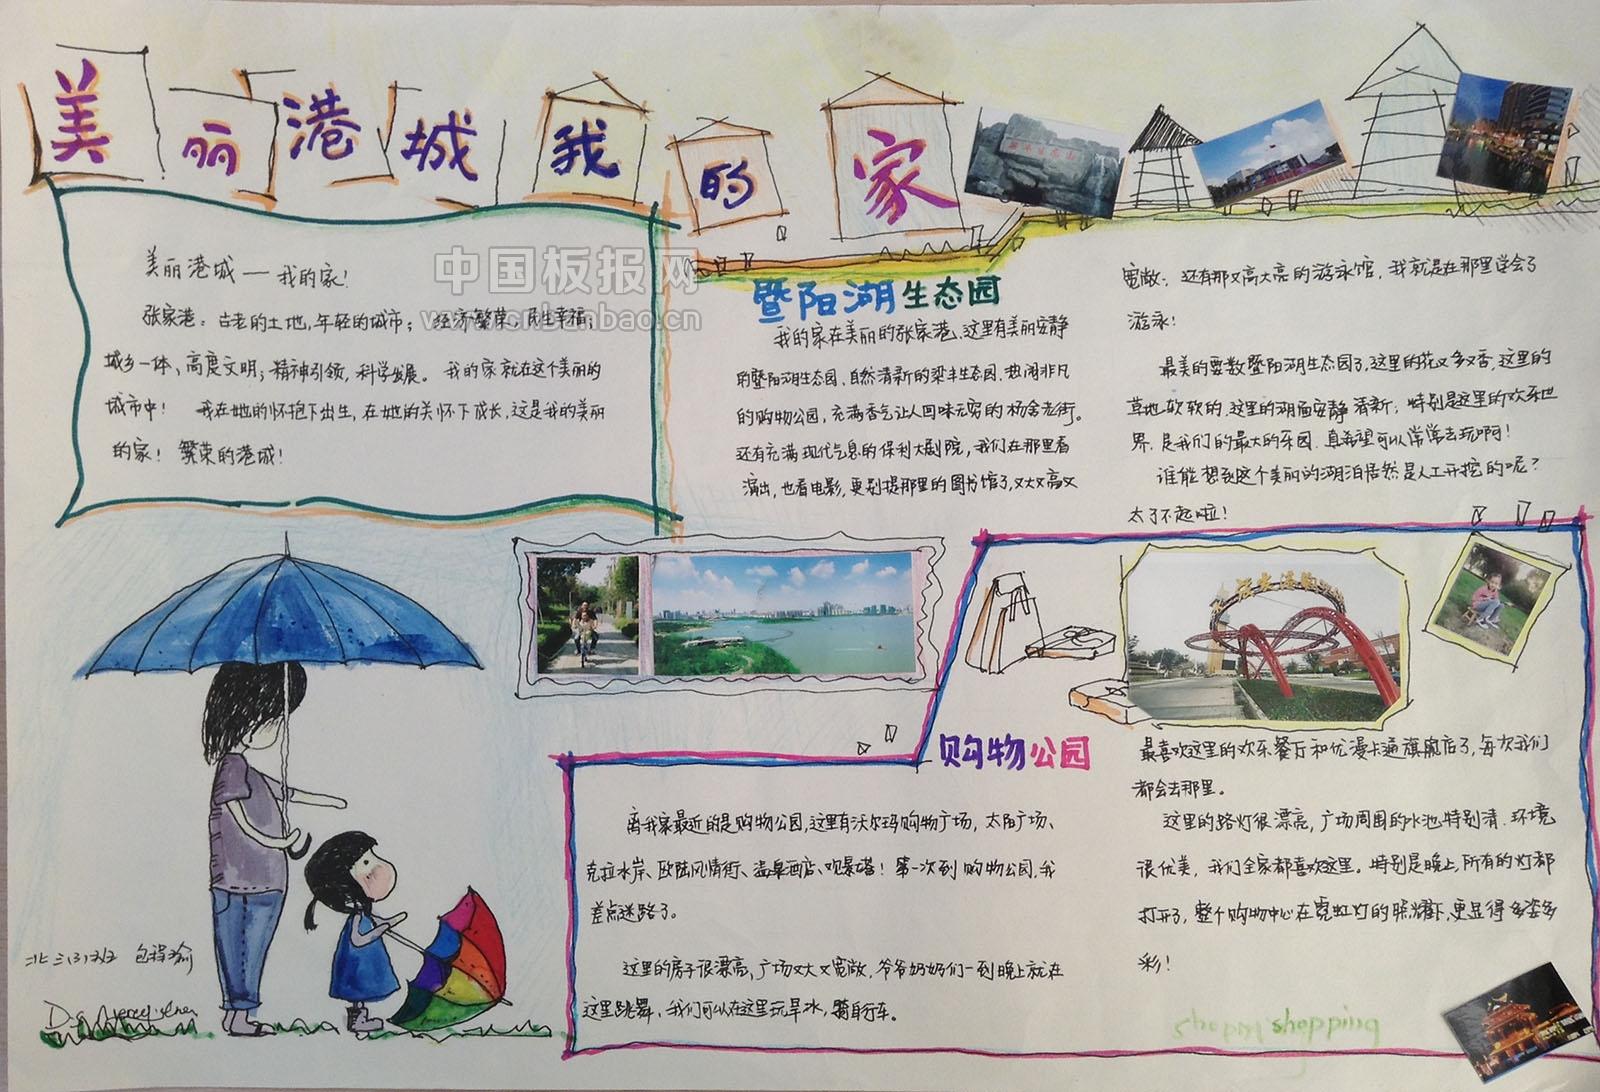 美丽港城我的家
美丽港城—我的家!
张家港:古老的土地,年轻的城市;经济繁荣,民生幸福;
城乡一体、高度文明;精神引领,科学发展。我的家就在这个美丽的
城市中!我在她的怀抱下出生,在她的关怀下成长,这是我的美丽
的家!繁荣的港城!
中国板报网
www.cnbanbao.cn
暨阳湖生态园
我的家在美丽的张家港、这里有美丽安静
的暨阳湖生态园、自然清新的梁丰生态园、热闹非凡
的购物公园,充满香气让人回味无穷的杨舍老街。
还有充满现代气息的保利大剧院,我们在那里看
演出,也看电影,更别提那里的图书馆了,又大又高又
宽敞;还有那又高大亮的游泳馆,我就是在那里学会了
游泳!
最美的要数暨阳湖生态园了,这里的花又多又香,这里的
草地软软的,这里的湖面安静清新;特别是这里的欢乐世
界,是我们的最大的乐园。真希望可以常常去玩啊!
谁能想到这个美丽的湖泊居然是人工开挖的呢?
太了不起啦!
购物公园
离我家最近的是购物公园,这里有沃尔玛购物广场,太阳广场、
克拉水岸、欧陆风情街、温泉酒店、观景塔!第一次到购物公园,我
差点迷路了。
这里的房子很漂亮,广场又大又宽敞,爷爷奶奶们一到晚上就在
这里跳舞,我们可以在这里玩旱冰,骑自行车。
最喜欢这里的欢乐餐厅和优漫卡通旗舰店了,每次我们
都会去那里。
这里的路灯很漂亮,广场周围的水池特别清,环境
很优美,我们全家都喜欢这里。特别是晚上,所有的灯都
打开了,整个购物中心在霓虹灯的照耀下,更显得多姿多
彩!
shopping
北三(3)班 包